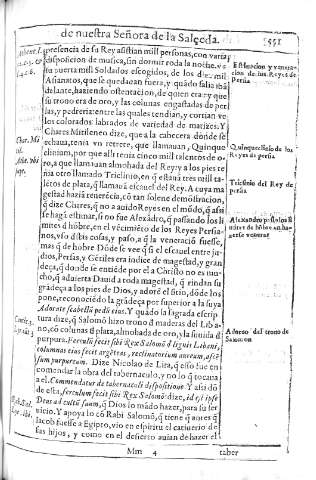 de nuestra Señora de la Salçeda.
551
presencia de su Rey assistian mill personas, con varia
disposicion de musica, sin dormir toda la noche. ve
su puerta mill Soldados escogidos, de los diez mil
que auian quedado fuera, y quãdo salia iban
delante, haziendo ostentacion, de quien era: y que
su trono era de oro, y las colunas engastadas de per
las, y pedreria: entre las quales tendian, y corrian ve
los colorados labrados de variedad de matizes. Y
Chares Mitileneo dize, que a la cabecera dõnde se
echaua, tenia vn retrete, que llamauan, Quinque
clinion, por que alli tenia cinco mill talentos de o
ro, a que llamauan almohada del Rey: y a los pies te
nia otro llamado Triclinio, en q̃ estauã tres mill ta
lẽtos de plata, q̃ llamauã escauel del Rey. A cuya ma
gestad hazia reuerẽcia, cõ tan solene demostracion,
q̃ dize Chares, q̃ no a auido Reyes en el mũdo, q̃ assi
se hagã estimar, si no fue Alexãdro, q̃ passando los li
mites d hõbre, en el vẽcimiẽto de los Reyes Persia-
nos, vso destas cosas, y paso, a q̃ la veneraciõ fuesse,
mas q̃ de hombre. Dõde se vee q̃ si el escauel entre ju-
dios, Persas, y Gẽtiles era indice de magestad, y gran
deça, q̃ donde se entiẽde por el a Christo no es mu-
cho, q̃ aduierta Dauid a toda magestad, q̃ rindan su
grãdeça a los pies de Dios, y adorẽ el sitio, dõde los
pone, reconociẽdo la grãdeça por superior a la suya
Adorate scabellũ pedũ eius. Y quãdo la sagrada escrip
tura dize, q̃ Salomõ hizo trono d maderas del Liba-
no, cõ colunas d plata, almohada de oro, y la subida d
purpura. Ferculũ fecit sibi Rex Salomõ d lignis Libani,
columnas eius fecit argẽteas, reclinatorium aureum, ascẽ
sum purpureum. Dize Nicolao de Lira, q̃ esso fue en
comendar la obra del tabernaculo, y no lo q̃ tocaua
a el. Commendatur de tabernaculi dispositione. Y assi dõ
de esta, ferculum fecit sibi Rex Salomõ: dize, id est ipse
Deus ad cultũ suum, q̃ Dios lo mãdo hazer, para su ser
uicio. Y apoya lo cõ Rabi Salomõ, q̃ tiene q̃ antes q̃
Iacob fuesse a Egipto, vio en espiritu el catiuerio de
sus hijos, y como en el desierto auian de hazer el
Mm 4
taber
Estimacion y venera-
cion de los Reyes de
Persia
Quinqueclinio de los
Reyes de persia
Triclinio del Rey de
persia
Adorno del trono de
Salomon